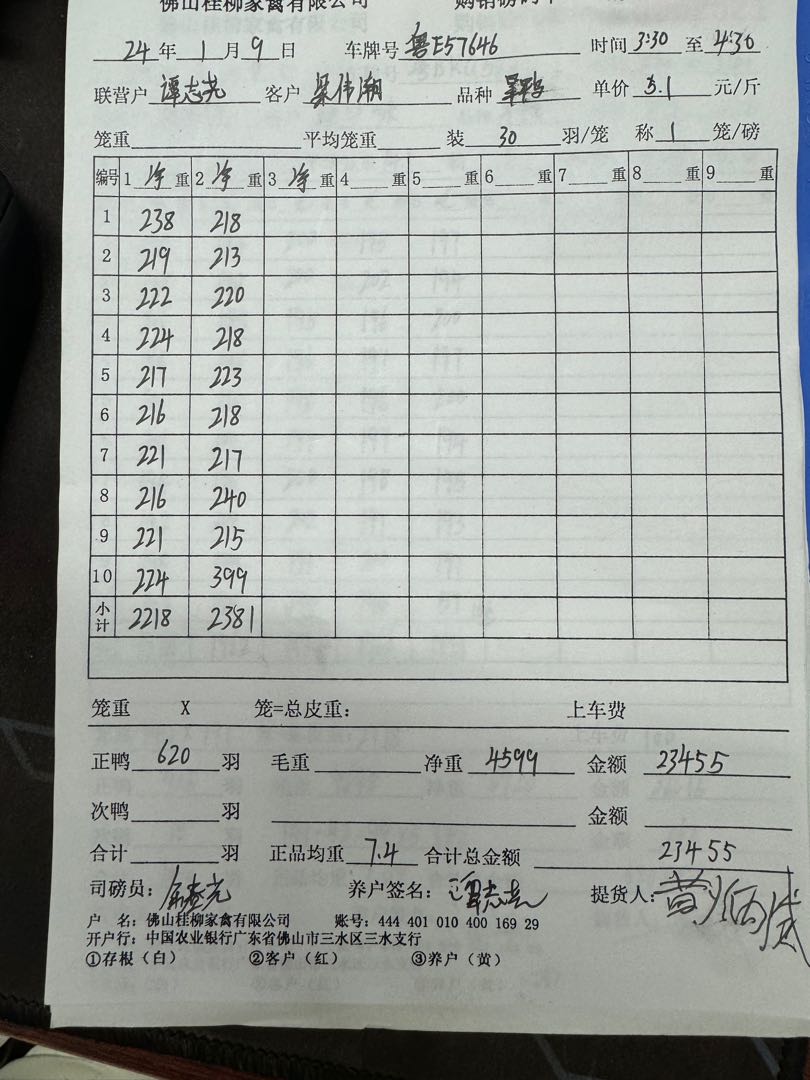 佛山桂柳家禽有限公司 购销磅码单
24年1月9日 车牌号 粤E57646 时间3:30至4:30
联营户 谭志尧 客户 梁伟潮 品种 单价 5.1 元/斤
笼重 平均笼重 装 30 羽/笼 称 1 笼/磅
编号 1 净 重 2 净 重 3 净 重 4 重 5 重 6 重 7 重 8 重 9 重
1 238 218
2 219 213
3 222 220
4 224 218
5 217 223
6 216 218
7 221 217
8 216 240
9 221 215
10 224 399
小计 2218 2381
笼重 X 笼=总皮重: 上车费
正鸭 620 羽 毛重 净重 4599 金额 23455
次鸭 羽 金额
合计 羽 正品均重 7.4 合计总金额 23455
司磅员: 养户签名: 谭志尧 提货人:
户 名: 佛山桂柳家禽有限公司 账号: 444 401 010 400 169 29
开户行: 中国农业银行广东省佛山市三水区三水支行
①存根(白) ②客户(红) ③养户(黄)